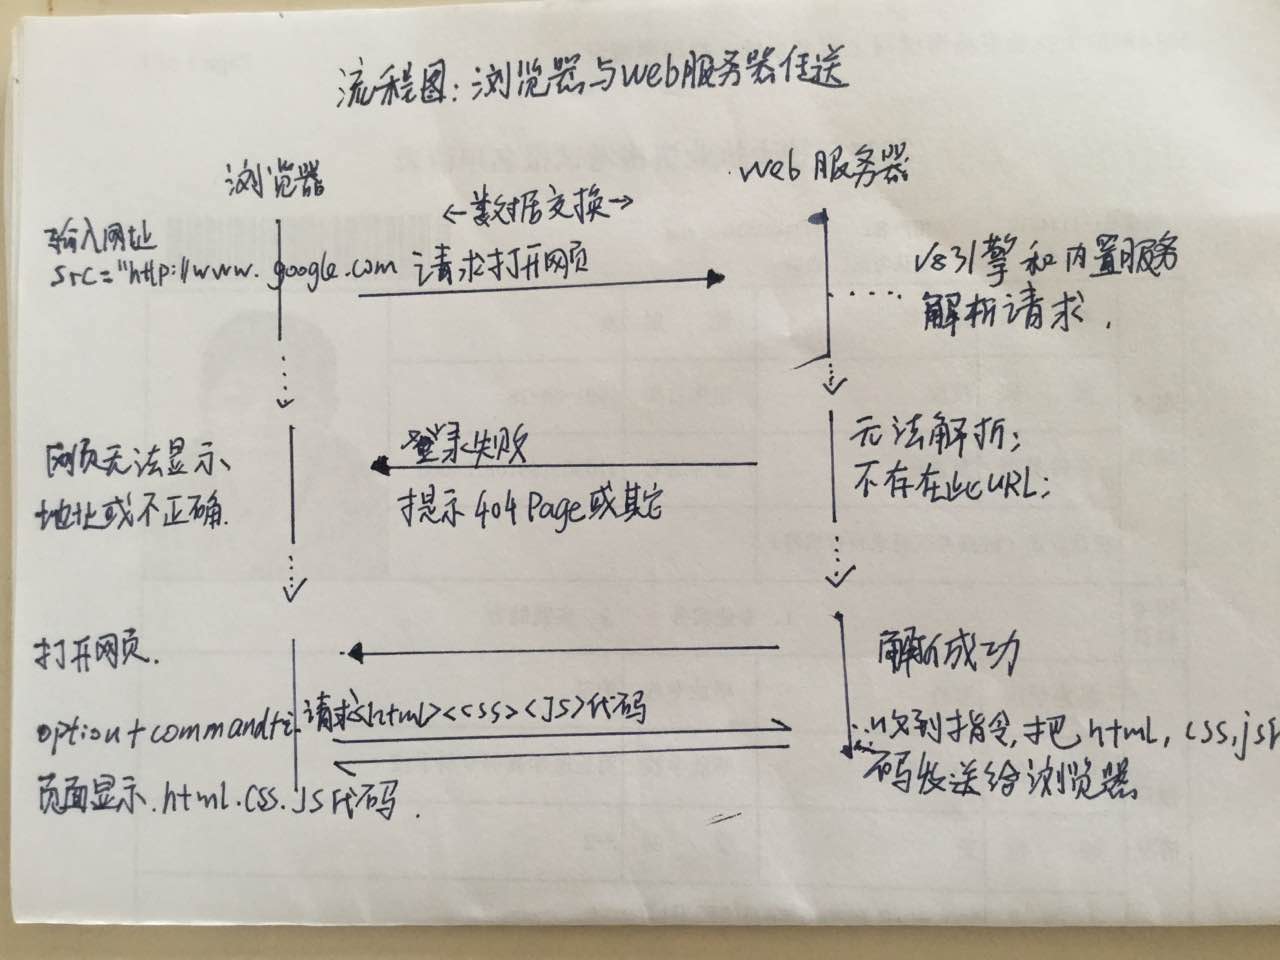 流程图：浏览器与web服务器传送
浏览器
web服务器
<-数据交换->
输入网址
src="http://www.google.com 请求打开网页
V8引擎和内置服务
解析请求.
网页无法显示、
地址或不正确.
登录失败
提示404Page或其它
无法解析;
不存在此URL;
打开网页.
解析成功
option+command+i
请求<html><css><JS>代码
收到指令,把html,css,js代
码发送给浏览器
页面显示.html.css.JS代码.